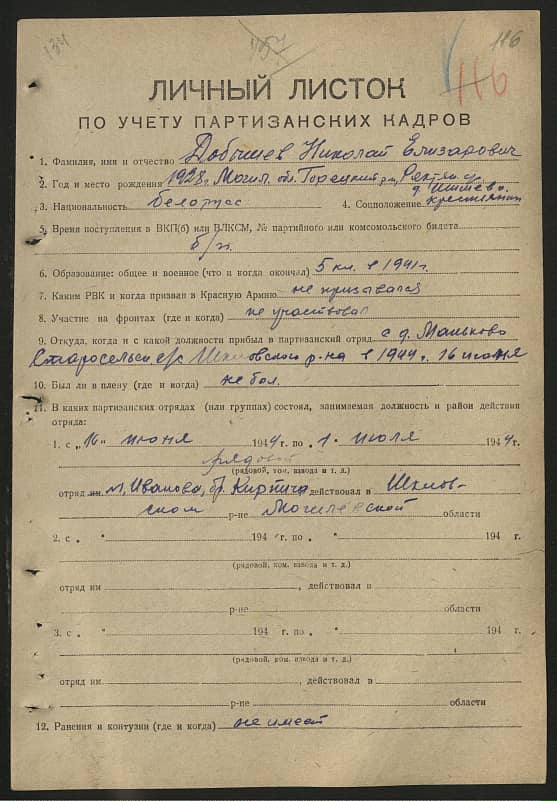 134
116
116
ЛИЧНЫЙ ЛИСТОК
ПО УЧЕТУ ПАРТИЗАНСКИХ КАДРОВ
1. Фамилия, имя и отчество Добышев Николай Елизарович
2. Год и место рождения 1928 г. Могил. обл. Горецкий р-н,
д.
3. Национальность белорус 4. Соцположение крестьянин
5. Время поступления в ВКП(б) или ВЛКСМ, № партийного или комсомольского билета
б/п.
6. Образование: общее и военное (что и когда окончил) 5 кл. в 1941 г.
7. Каким РВК и когда призван в Красную Армию не призывался
8. Участие на фронтах (где и когда) не участвовал
9. Откуда, когда и с какой должности прибыл в партизанский отряд с д. Маньково
Старосельск с/с Шкловского р-на в 1944 г. 16 июня
10. Был ли в плену (где и когда) не был.
11. В каких партизанских отрядах (или группах) состоял, занимаемая должность и район действия
отряда:
1. с „16" июня 1944 г. по 1. июля 1944 г.
рядовой
(рядовой, ком. взвода и т. д.)
отряд им. Иванова, бр. Кирпича действовал в Шклов-
ском р-не Могилевской области
2. с „ " 194 г. по „ " 194 г.
(рядовой, ком. взвода и т. д.)
отряд им , действовал в
р-не области
3. с „ " 194 г. по „ " 194 г.
(рядовой, ком. взвода и т. д.)
отряд им , действовал в
р-не области
12. Ранения и контузии (где и когда) не имеет